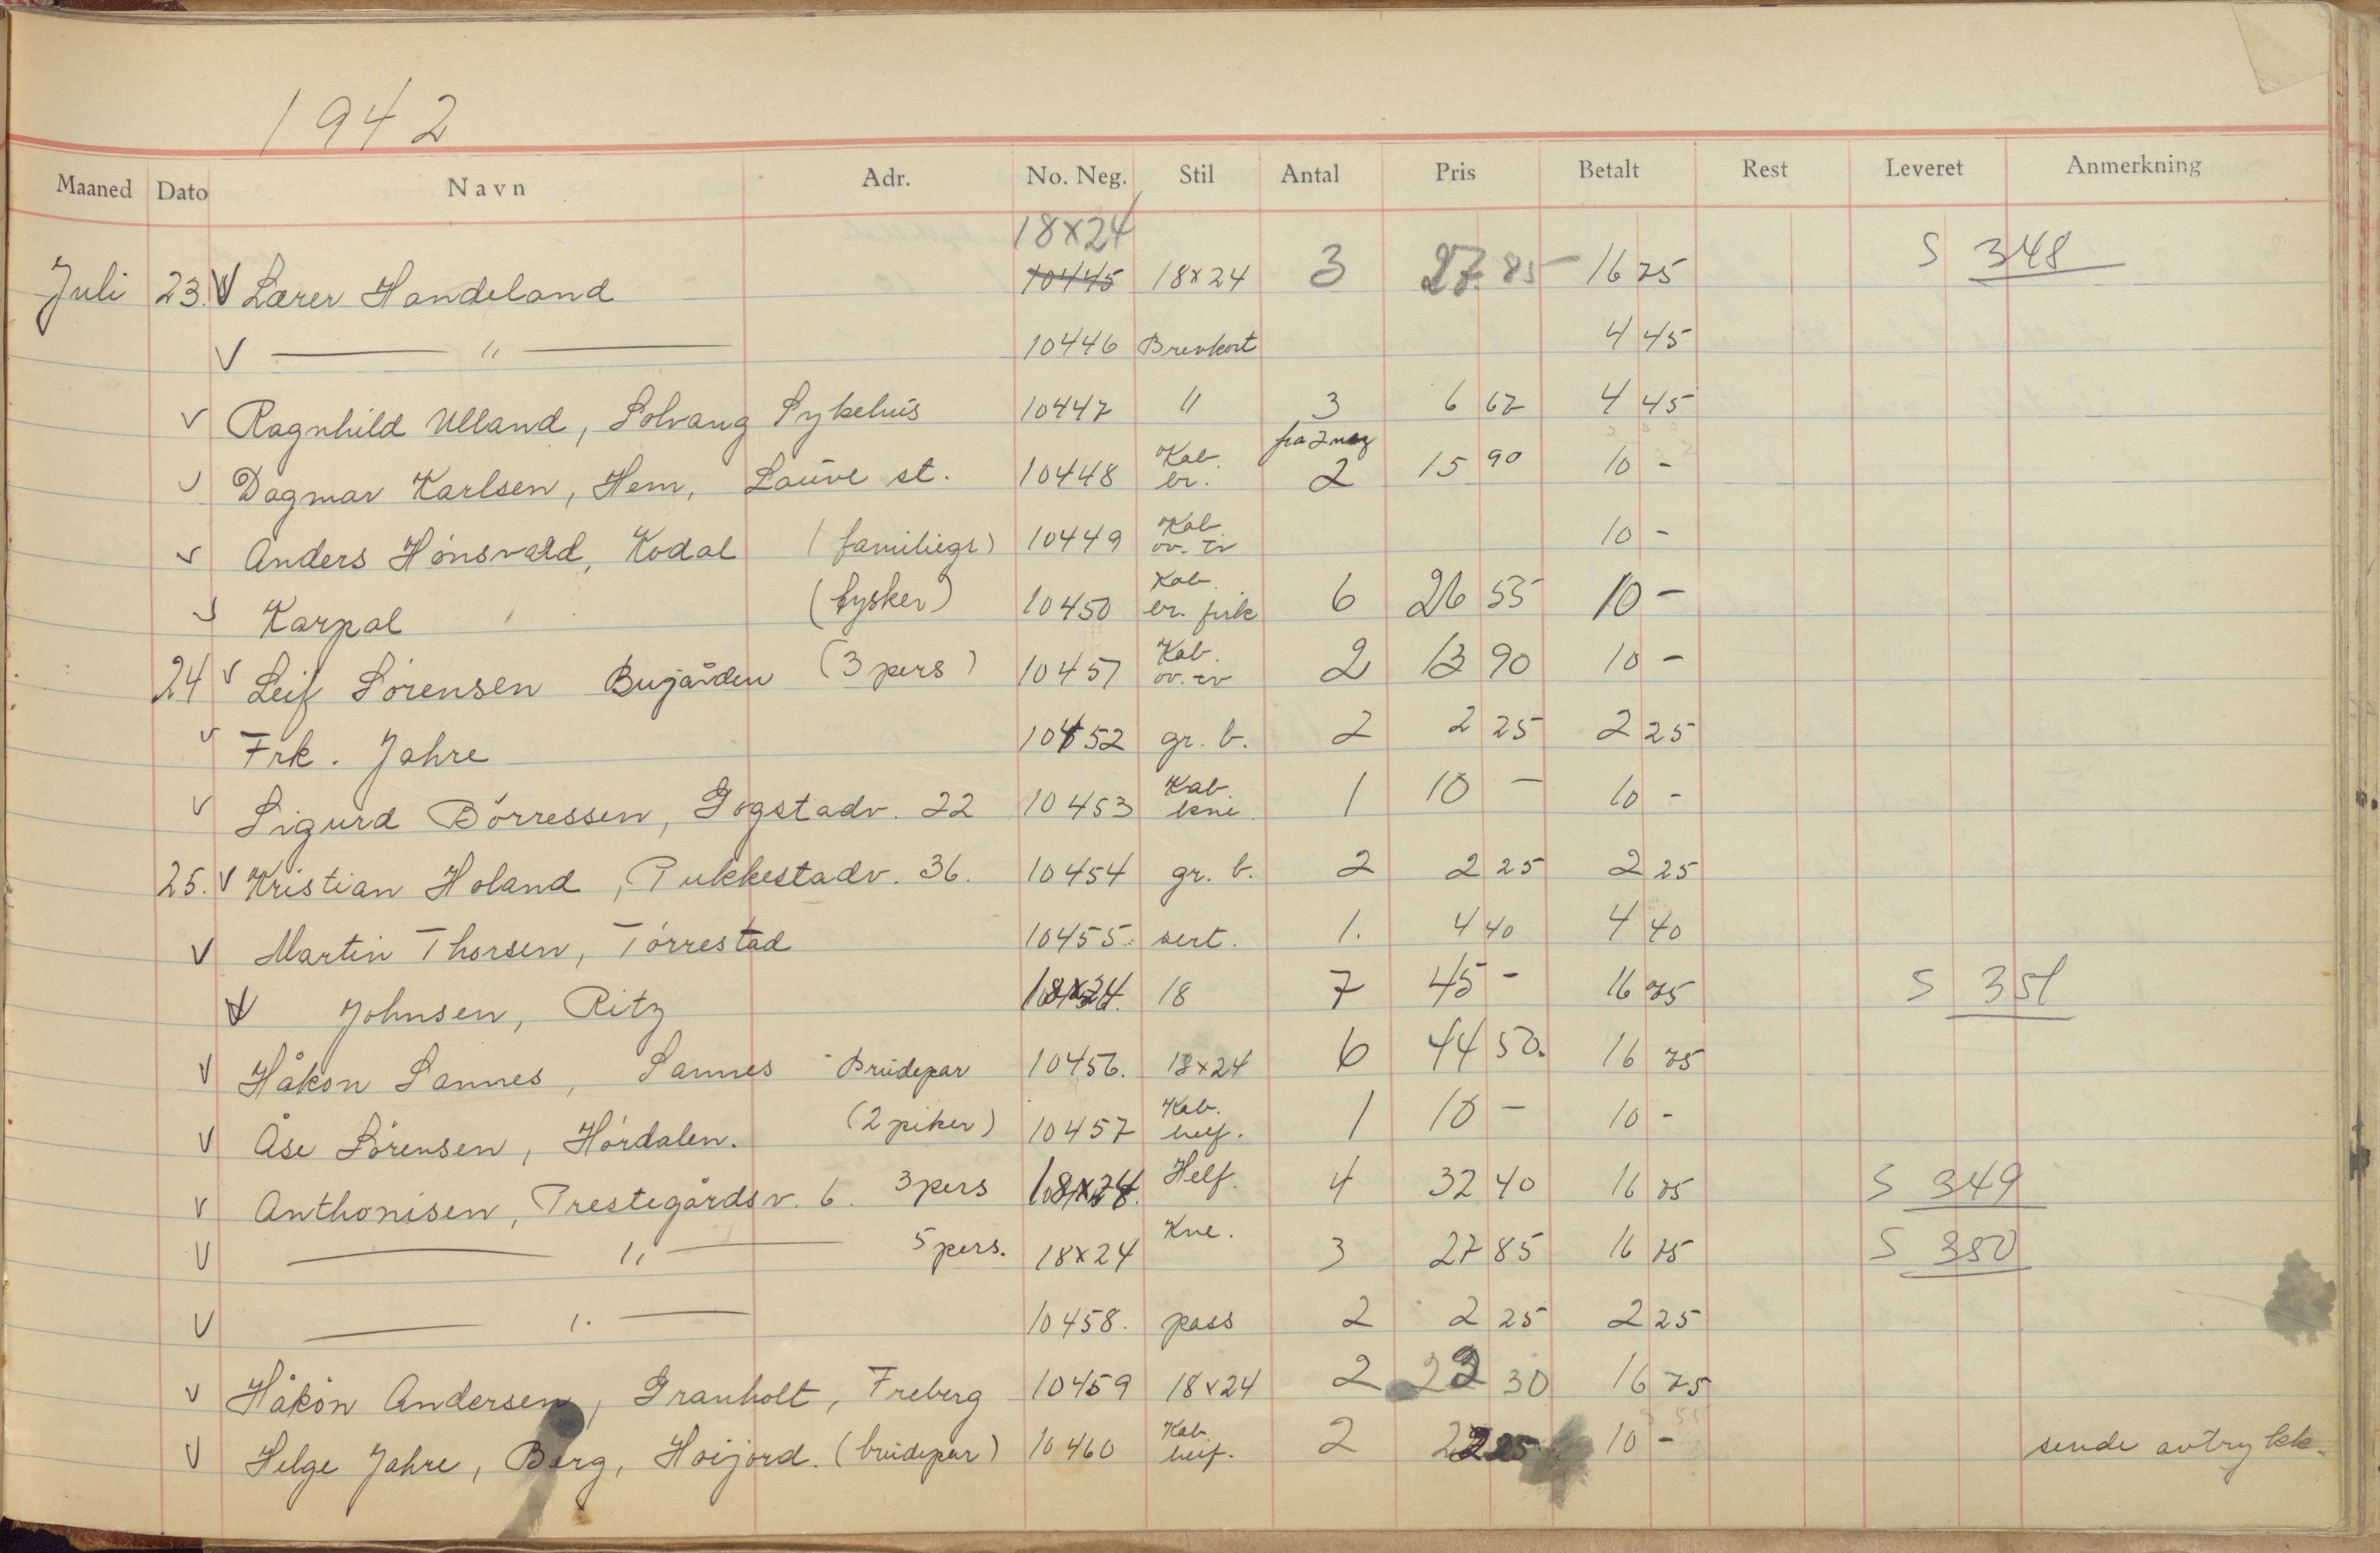 1942
Maaned Dato Navn Adr. No. Neg. Stil Antal Pris Betalt Rest Leveret Anmerkning
18x24
Juli 23. V Lærer Handeland 10445 18x24 3 27 85 16 75 S 348
V — " — 10446 Brevkort 4 45
V Ragnhild Ulland, Solvang Sykehus 10447 " 3 6 67 4 45
V Dagmar Karlsen, Hem, Lauve st. 10448 Kab. br. fra 2 neg 2 15 90 10 -
V Anders Hønsvald, Kodal (familiegr) 10449 Kab ov. tv 10 -
V Karpal (tysker) 10450 Kab. br. pirk 6 26 55 10 -
24 V Leif Sörensen Bugården (3 pers) 10451 Kab. ov. tv 2 13 90 10 -
V Frk. Jahre 10452 gr. b. 2 2 25 2 25
V Sigurd Börressen, Gogstadv. 22 10453 Kab. kne 1 10 - 10 -
25. V Kristian Holand, Pukkestadv. 36. 10454 gr. b. 2 2 25 2 25
V Martin Thorsen, Törrestad 10455. sert. 1. 4 40 4 40
V Johnsen, Ritz 18x24. 18 7 45 - 16 75 S 351
V Håkon Sannes, Sannes Brudepar 10456. 18x24 6 44 50. 16 75
V Åse Sörensen, Hördalen. (2 piker) 10457 Kab. helf. 1 10 - 10 -
V Anthonisen, Prestegårdsv. 6. 3 pers 18x24. Helf. 4 32 40 16 75 S 349
V — " — 5 pers. 18x24 Kne. 3 27 85 16 75 S 350
V — " — 10458. pass 2 2 25 2 25
V Håkon Andersen, Granholt, Freberg 10459 18x24 2 22 30 16 75
V Helge Jahre, Berg, Høijord. (brudepar) 10460 Kab. helf. 2 10 - sende avtrykk.